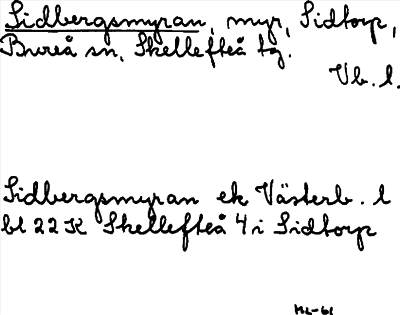 Sidbergsmyran, myr, Sidtorp,
Bureå sn, Skellefteå tg.
Vb. l.
Sidbergsmyran ek Västerb. l
bl 22 K Skellefteå 4 i Sidtorp
ML-61